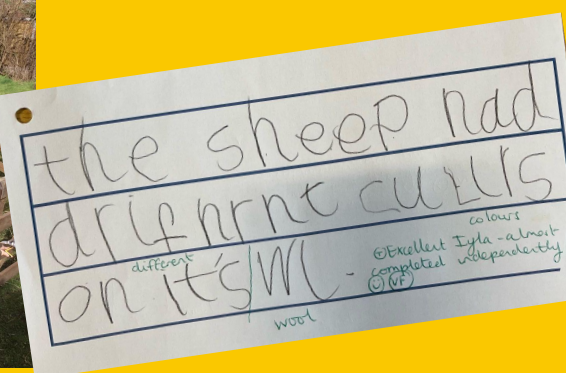 the sheep had
drifnrnt cullrs
different
colours
on it's wl.
wool
Excellent Iyla - almost
completed independently
VF